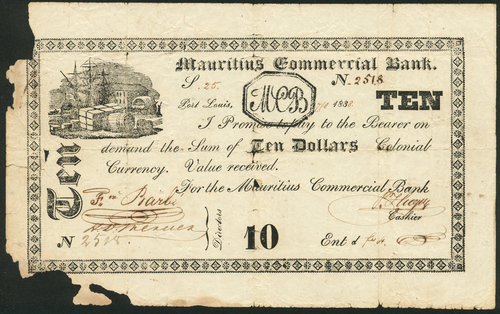 Mauritius Commercial Bank.
S. 25. N 2518
MCB
Port Louis, 1838
TEN
I Promise to pay to the Bearer on
demand the Sum of Ten Dollars Colonial
Currency. Value received.
For the Mauritius Commercial Bank
Ten
Directors
Cashier
N 2518
10
Entd